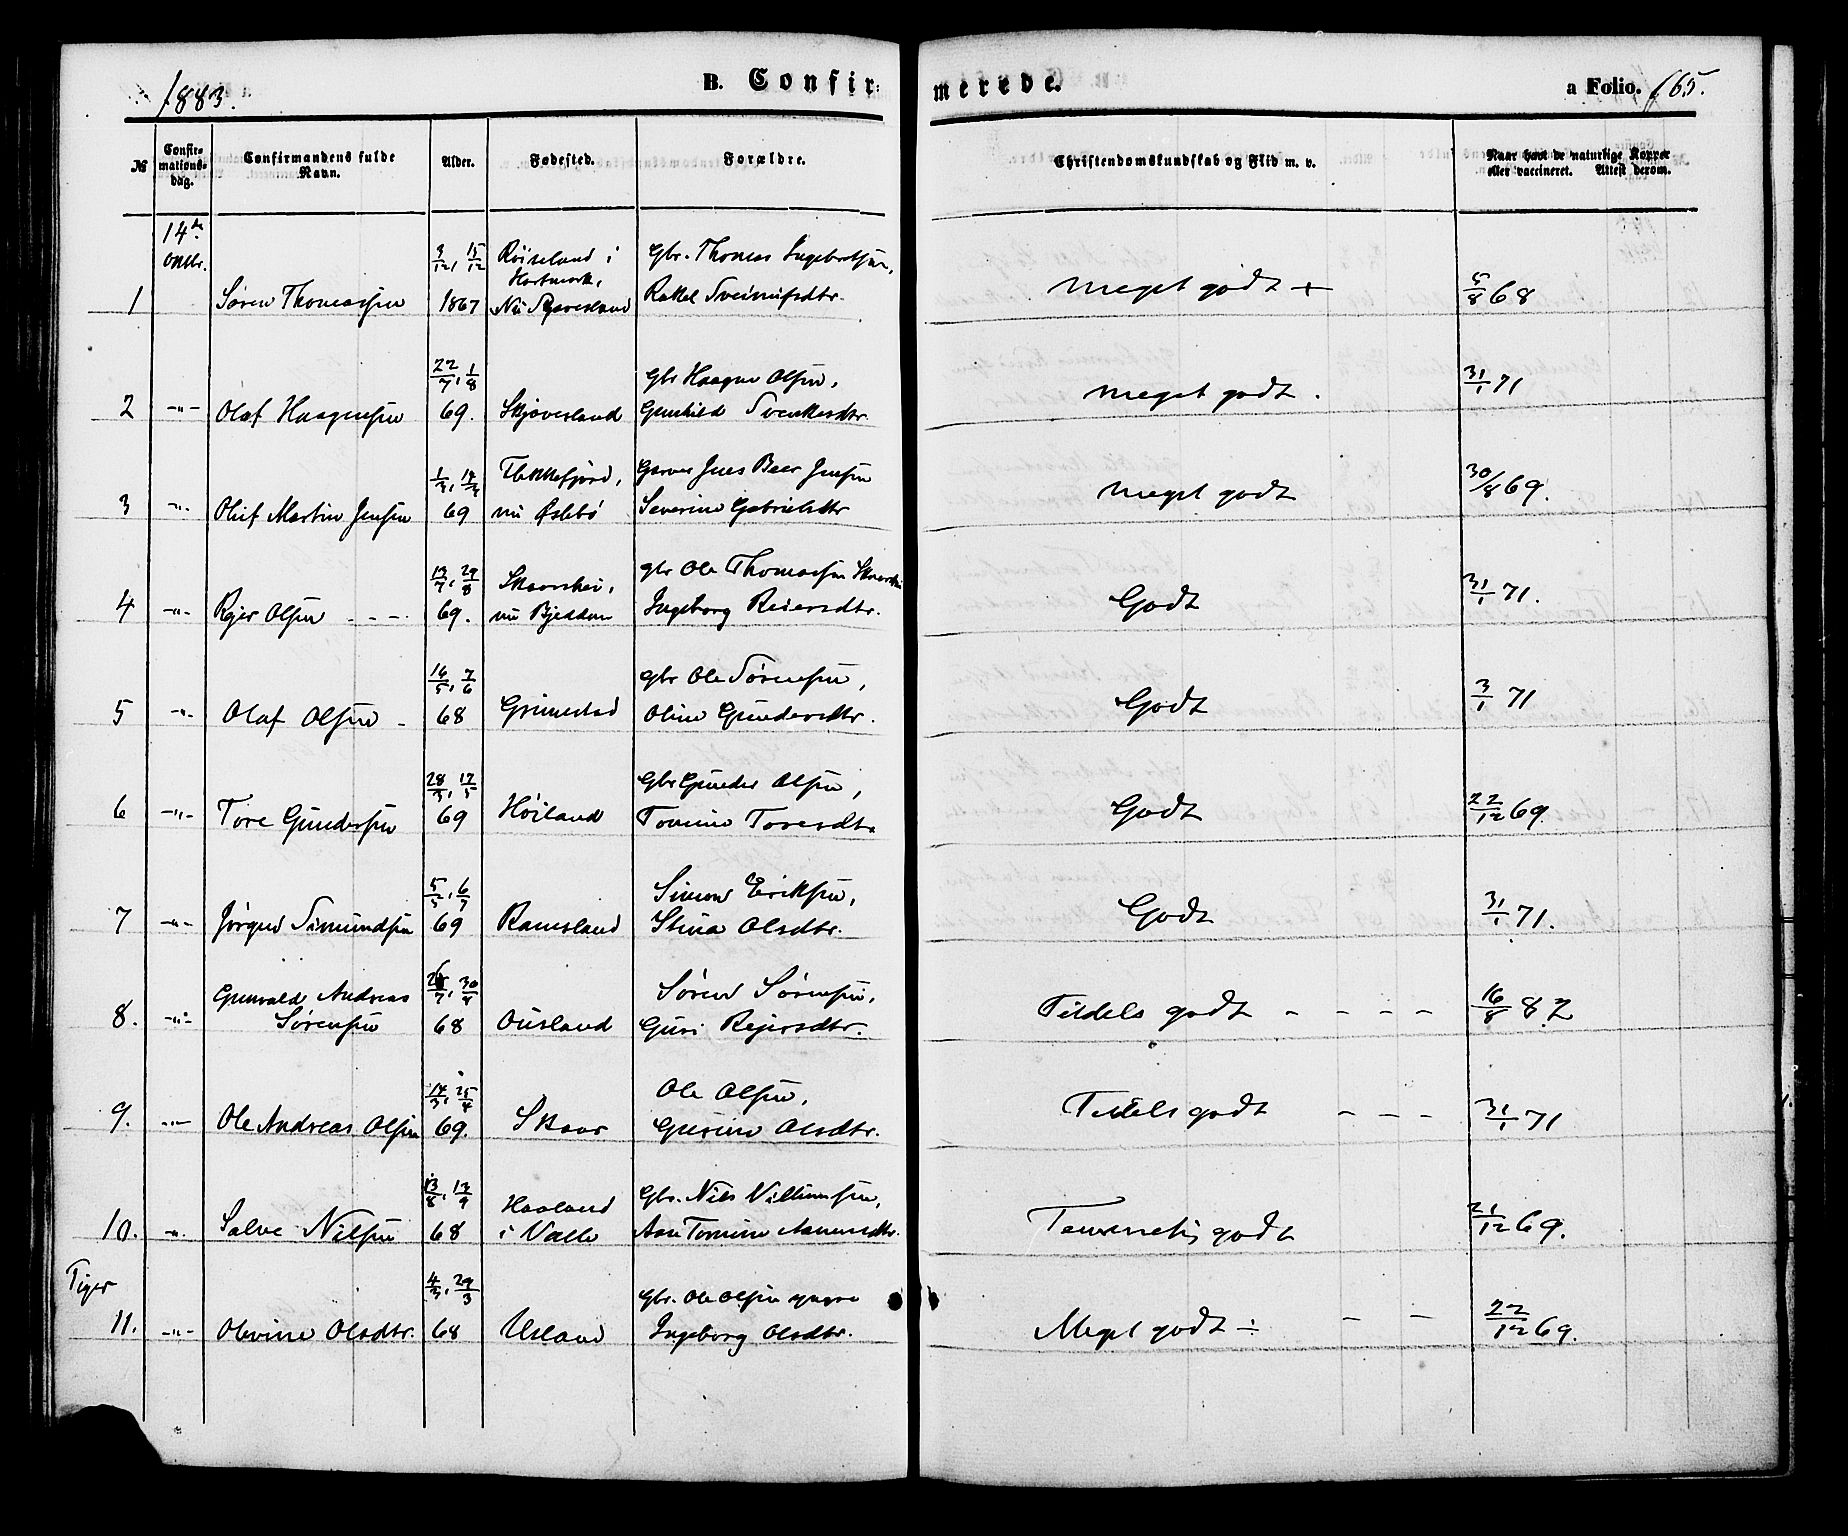 1883.
B. Confirmerede.
a Folio. 165.
№
Confirmationsdag.
Confirmandens fulde Navn.
Alder.
Fødested.
Forældre.
Christendomskundskab og Flid m. v.
Naar havt de naturlige Kopper eller vaccineret. Attest derom.
14de Oktbr.
1 Søren Thomassen 3/12, 15/12 1867 Röiseland i Hartmark, Nu Skjæveland Gbr. Thomas Ingebretsen, Rakel Sveinusdtr. Meget godt + 5/8 68
2 -"- Olaf Haagensen 22/7, 1/8 69. Skjæveland Gbr Haagen Olsen, Gunhild Svenkesdtr. Meget godt. 31/1 71
3 -"- Oluf Martin Jensen 69 Flekkefjord, nu Øslebö Garver Jens Beer Jensen Severine Gabrielsdtr Meget godt 30/8 69.
4 -"- Rejer Olsen - - - 13/7, 29/8 69. nu Bjeddan gbr Ole Thomassen Ingeborg Reiersdtr. Godt 31/1 71.
5 -"- Olaf Olsen - 16/5, 7/6 68 Grimestad gbr Ole Sörensen, Oline Gundersdtr. Godt 3/1 71
6 -"- Tore Gundersen 28/3, 17/5 69 Höiland Gbr Gunder Olsen, Tomine Toresdtr Godt 22/12 69.
7 -"- Jörgen Simundsen 5/5, 6/7 69 Ramsland Simon Eriksen, Stina Olsdtr. Godt 31/1 71.
8. -"- Gunvald Andreas Sörensen 68 Ousland Sören Sörensen, Guri Rejersdtr. Tildels godt - - - - 16/8 82
9. -"- Ole Andreas Olsen 14/3, 25/4 69. Skaar Ole Olsen, Gurine Olsdtr. Tildels godt - - - 31/1 71
10. -"- Salve Nilsen 13/8, 13/9 68 Haaland i Valle Gbr. Nils Villumsen, Ane Tomine Aanensdtr. Temmelig godt 21/12 69.
Piger
11. -"- Olevine Olsdtr. 4/3, 29/3 68 Usland Gbr. Ole Olsen yngre Ingeborg Olsdtr. Meget godt ÷ - - 22/12 69.